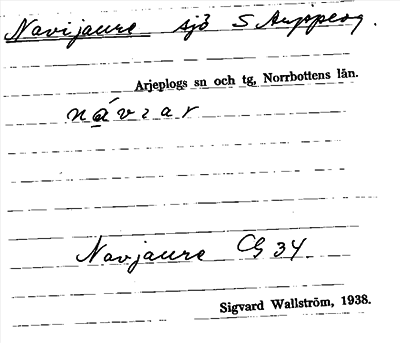 Navijaure sjö S Auppevg.
Arjeplogs sn och tg, Norrbottens län.
návzar
Navjaure CG 34
Sigvard Wallström, 1938.